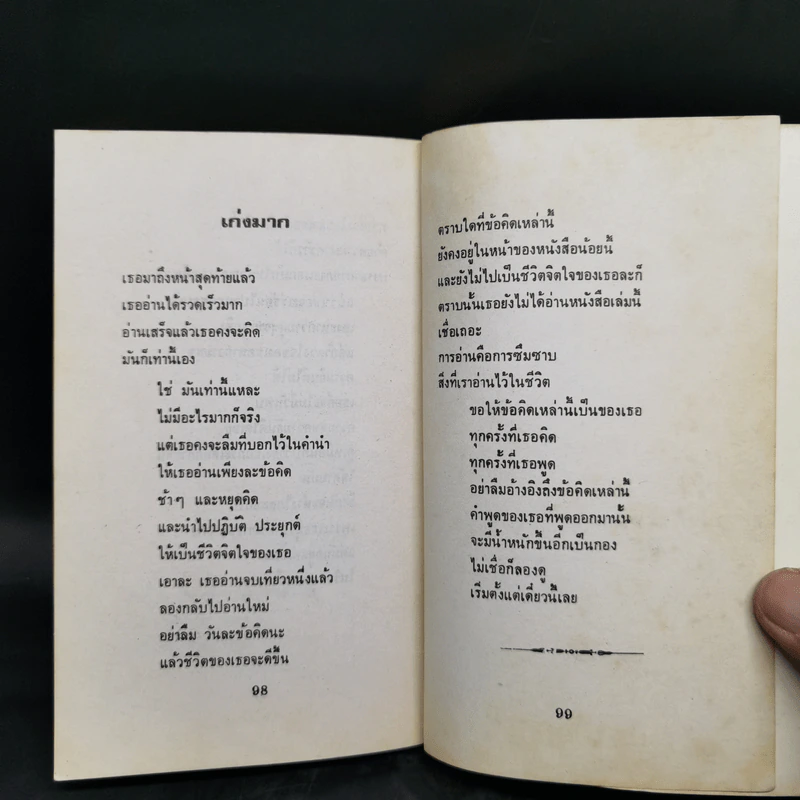 เก่งมาก
เธอมาถึงหน้าสุดท้ายแล้ว
เธออ่านได้รวดเร็วมาก
อ่านเสร็จแล้วเธอคงจะคิด
มันก็เท่านี้เอง
ใช่ มันเท่านี้แหละ
ไม่มีอะไรมากก็จริง
แต่เธอคงจะลืมที่บอกไว้ในคำนำ
ให้เธออ่านเพียงละข้อคิด
ช้าๆ และหยุดคิด
และนำไปปฏิบัติ ประยุกต์
ให้เป็นชีวิตจิตใจของเธอ
เอาละ เธออ่านจบเที่ยวหนึ่งแล้ว
ลองกลับไปอ่านใหม่
อย่าลืม วันละข้อคิดนะ
แล้วชีวิตของเธอจะดีขึ้น
98
ตราบใดที่ข้อคิดเหล่านี้
ยังคงอยู่ในหน้าของหนังสือน้อยนี้
และยังไม่ไปเป็นชีวิตจิตใจของเธอละก็
ตราบนั้นเธอยังไม่ได้อ่านหนังสือเล่มนี้
เชื่อเถอะ
การอ่านคือการซึมซาบ
สิ่งที่เราอ่านไว้ในชีวิต
ขอให้ข้อคิดเหล่านี้เป็นของเธอ
ทุกครั้งที่เธอคิด
ทุกครั้งที่เธอพูด
อย่าลืมอ้างอิงถึงข้อคิดเหล่านี้
คำพูดของเธอที่พูดออกมานั้น
จะมีน้ำหนักขึ้นอีกเป็นกอง
ไม่เชื่อก็ลองดู
เริ่มตั้งแต่เดี๋ยวนี้เลย
99